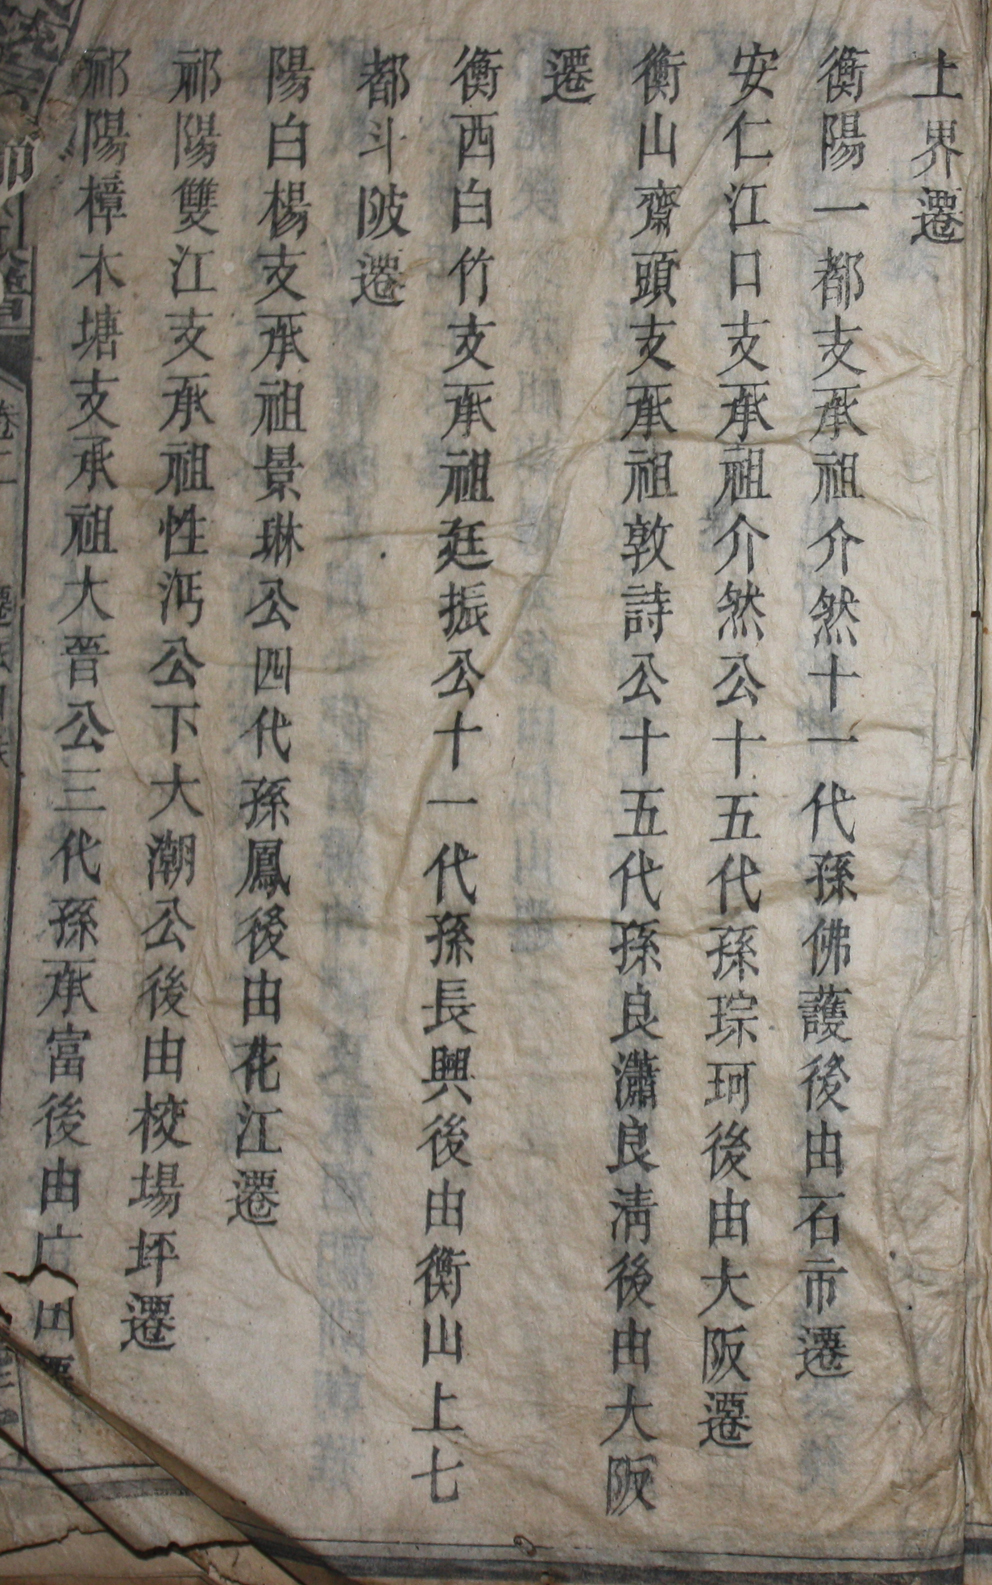 上界遷
衡陽一都支承祖介然十一代孫佛護後由石市遷
安仁江口支承祖介然公十五代孫琮珂後由大阪遷
衡山齋頭支承祖敦詩公十五代孫良瀟良淸後由大阪
遷
衡西白竹支承祖廷振公十一代孫長興後由衡山上七
都斗陂遷
陽白楊支承祖景琳公四代孫鳳後由花江遷
祁陽雙江支承祖性沔公下大潮公後由校場坪遷
祁陽樟木塘支承祖大晉公三代孫承富後由
卷二